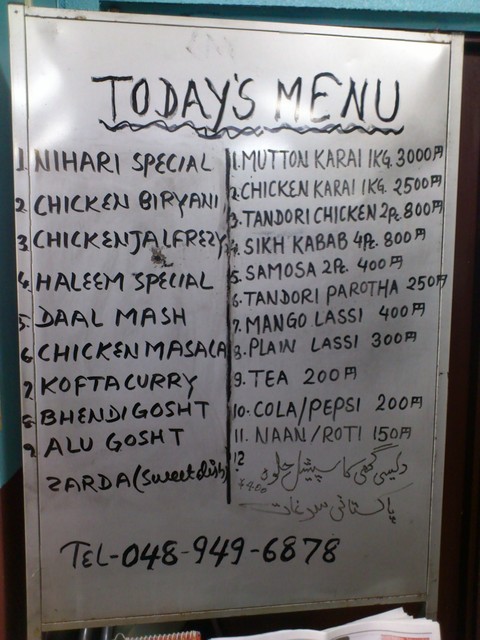 TODAY'S MENU
1. NIHARI SPECIAL
2. CHICKEN BIRYANI
3. CHICKEN JALFREZY
4. HALEEM SPECIAL
5. DAAL MASH
6. CHICKEN MASALA
7. KOFTA CURRY
8. BHENDI GOSHT
9. ALU GOSHT
ZARDA (sweet dish)
1. MUTTON KARAI 1KG. 3000円
2. CHICKEN KARAI 1KG. 2500円
3. TANDORI CHICKEN 2Pc. 800円
4. SIKH KABAB 4Pc. 800円
5. SAMOSA 2Pc. 400円
6. TANDORI PAROTHA 250円
7. MANGO LASSI 400円
8. PLAIN LASSI 300円
9. TEA 200円
10. COLA/PEPSI 200円
11. NAAN/ROTI 150円
12 دیسی گھی کا سپیشل حلوہ
پاکستانی سوغات
TEL-048-949-6878